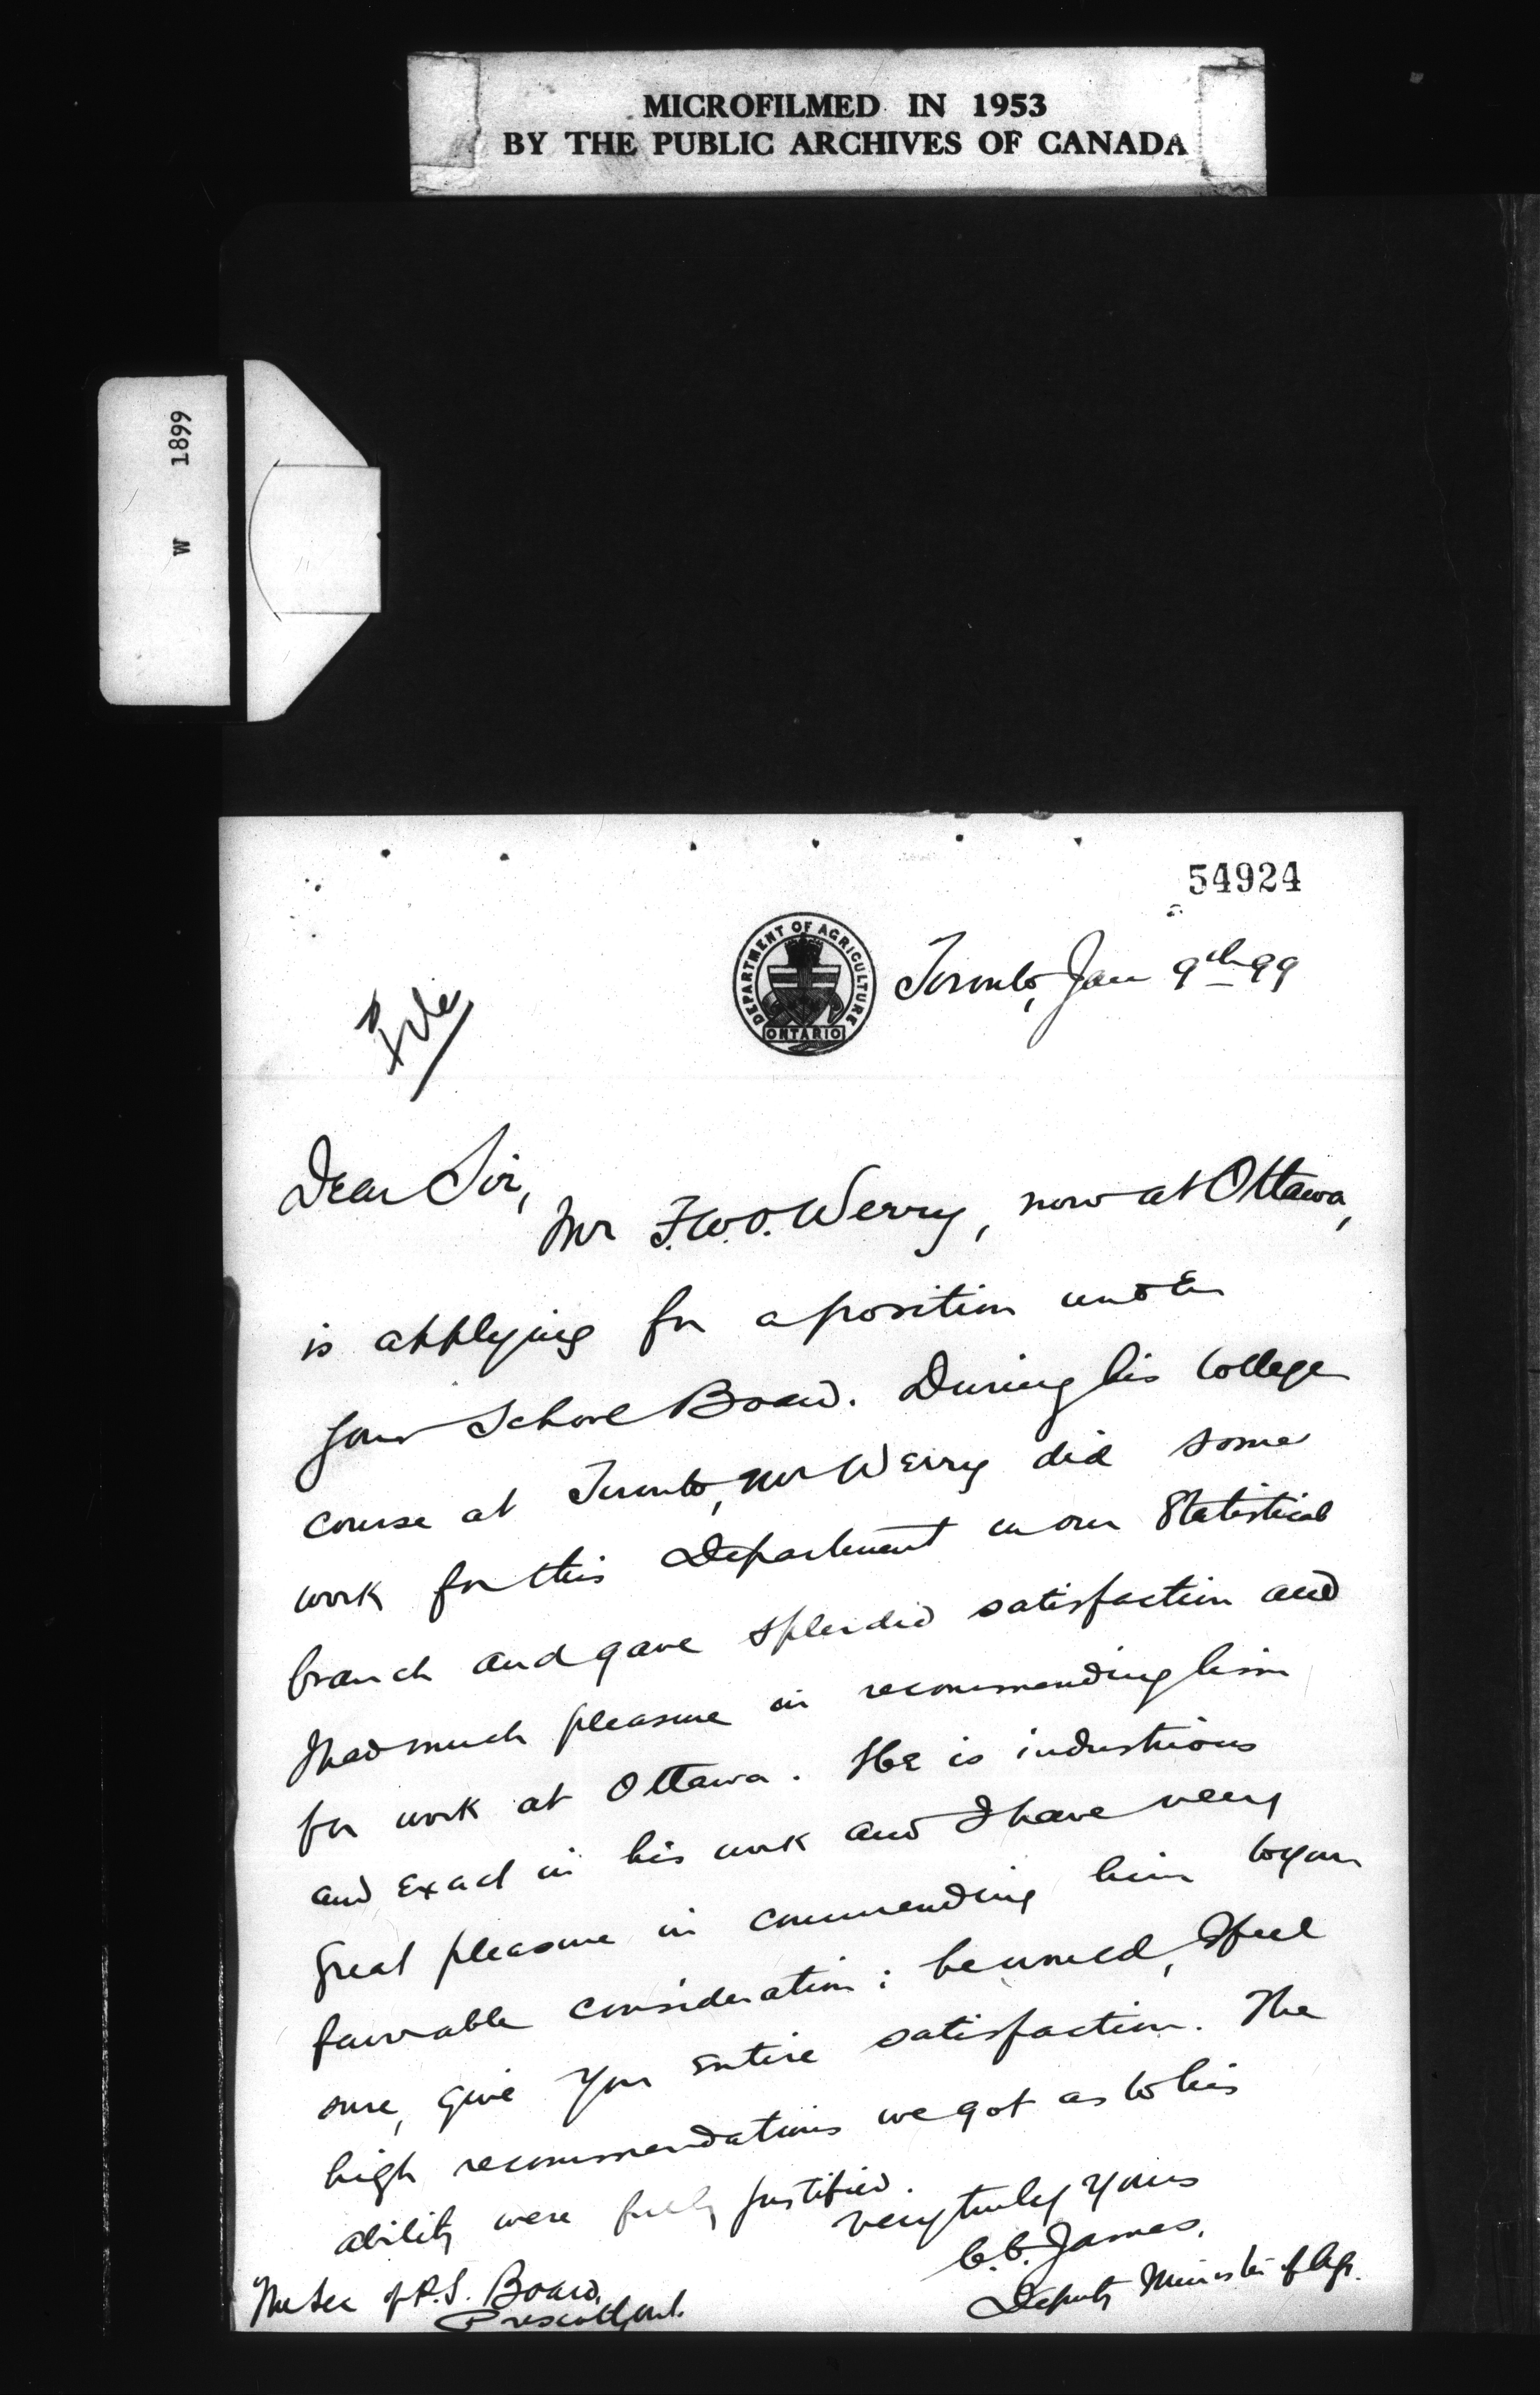 MICROFILMED IN 1953
BY THE PUBLIC ARCHIVES OF CANADA
W 1899
54924
DEPARTMENT OF AGRICULTURE
ONTARIO
Toronto, Jan 9th 99
File
Dear Sir,
Mr F.W.O. Werry, now at Ottawa,
is applying for a position under
your School Board. During his College
course at Toronto, Mr Werry did some
work for this Department in our Statistical
branch and gave splendid satisfaction and
I had much pleasure in recommending him
for work at Ottawa. He is industrious
and exact in his work and I have very
great pleasure in commending him to your
favorable consideration; he would, I feel
sure, give you entire satisfaction. The
high recommendations we got as to his
ability were fully justified.
Very truly yours
C.C. James,
Deputy Minister of Agr.
The Sec of P.S. Board,
Prescott, Ont.